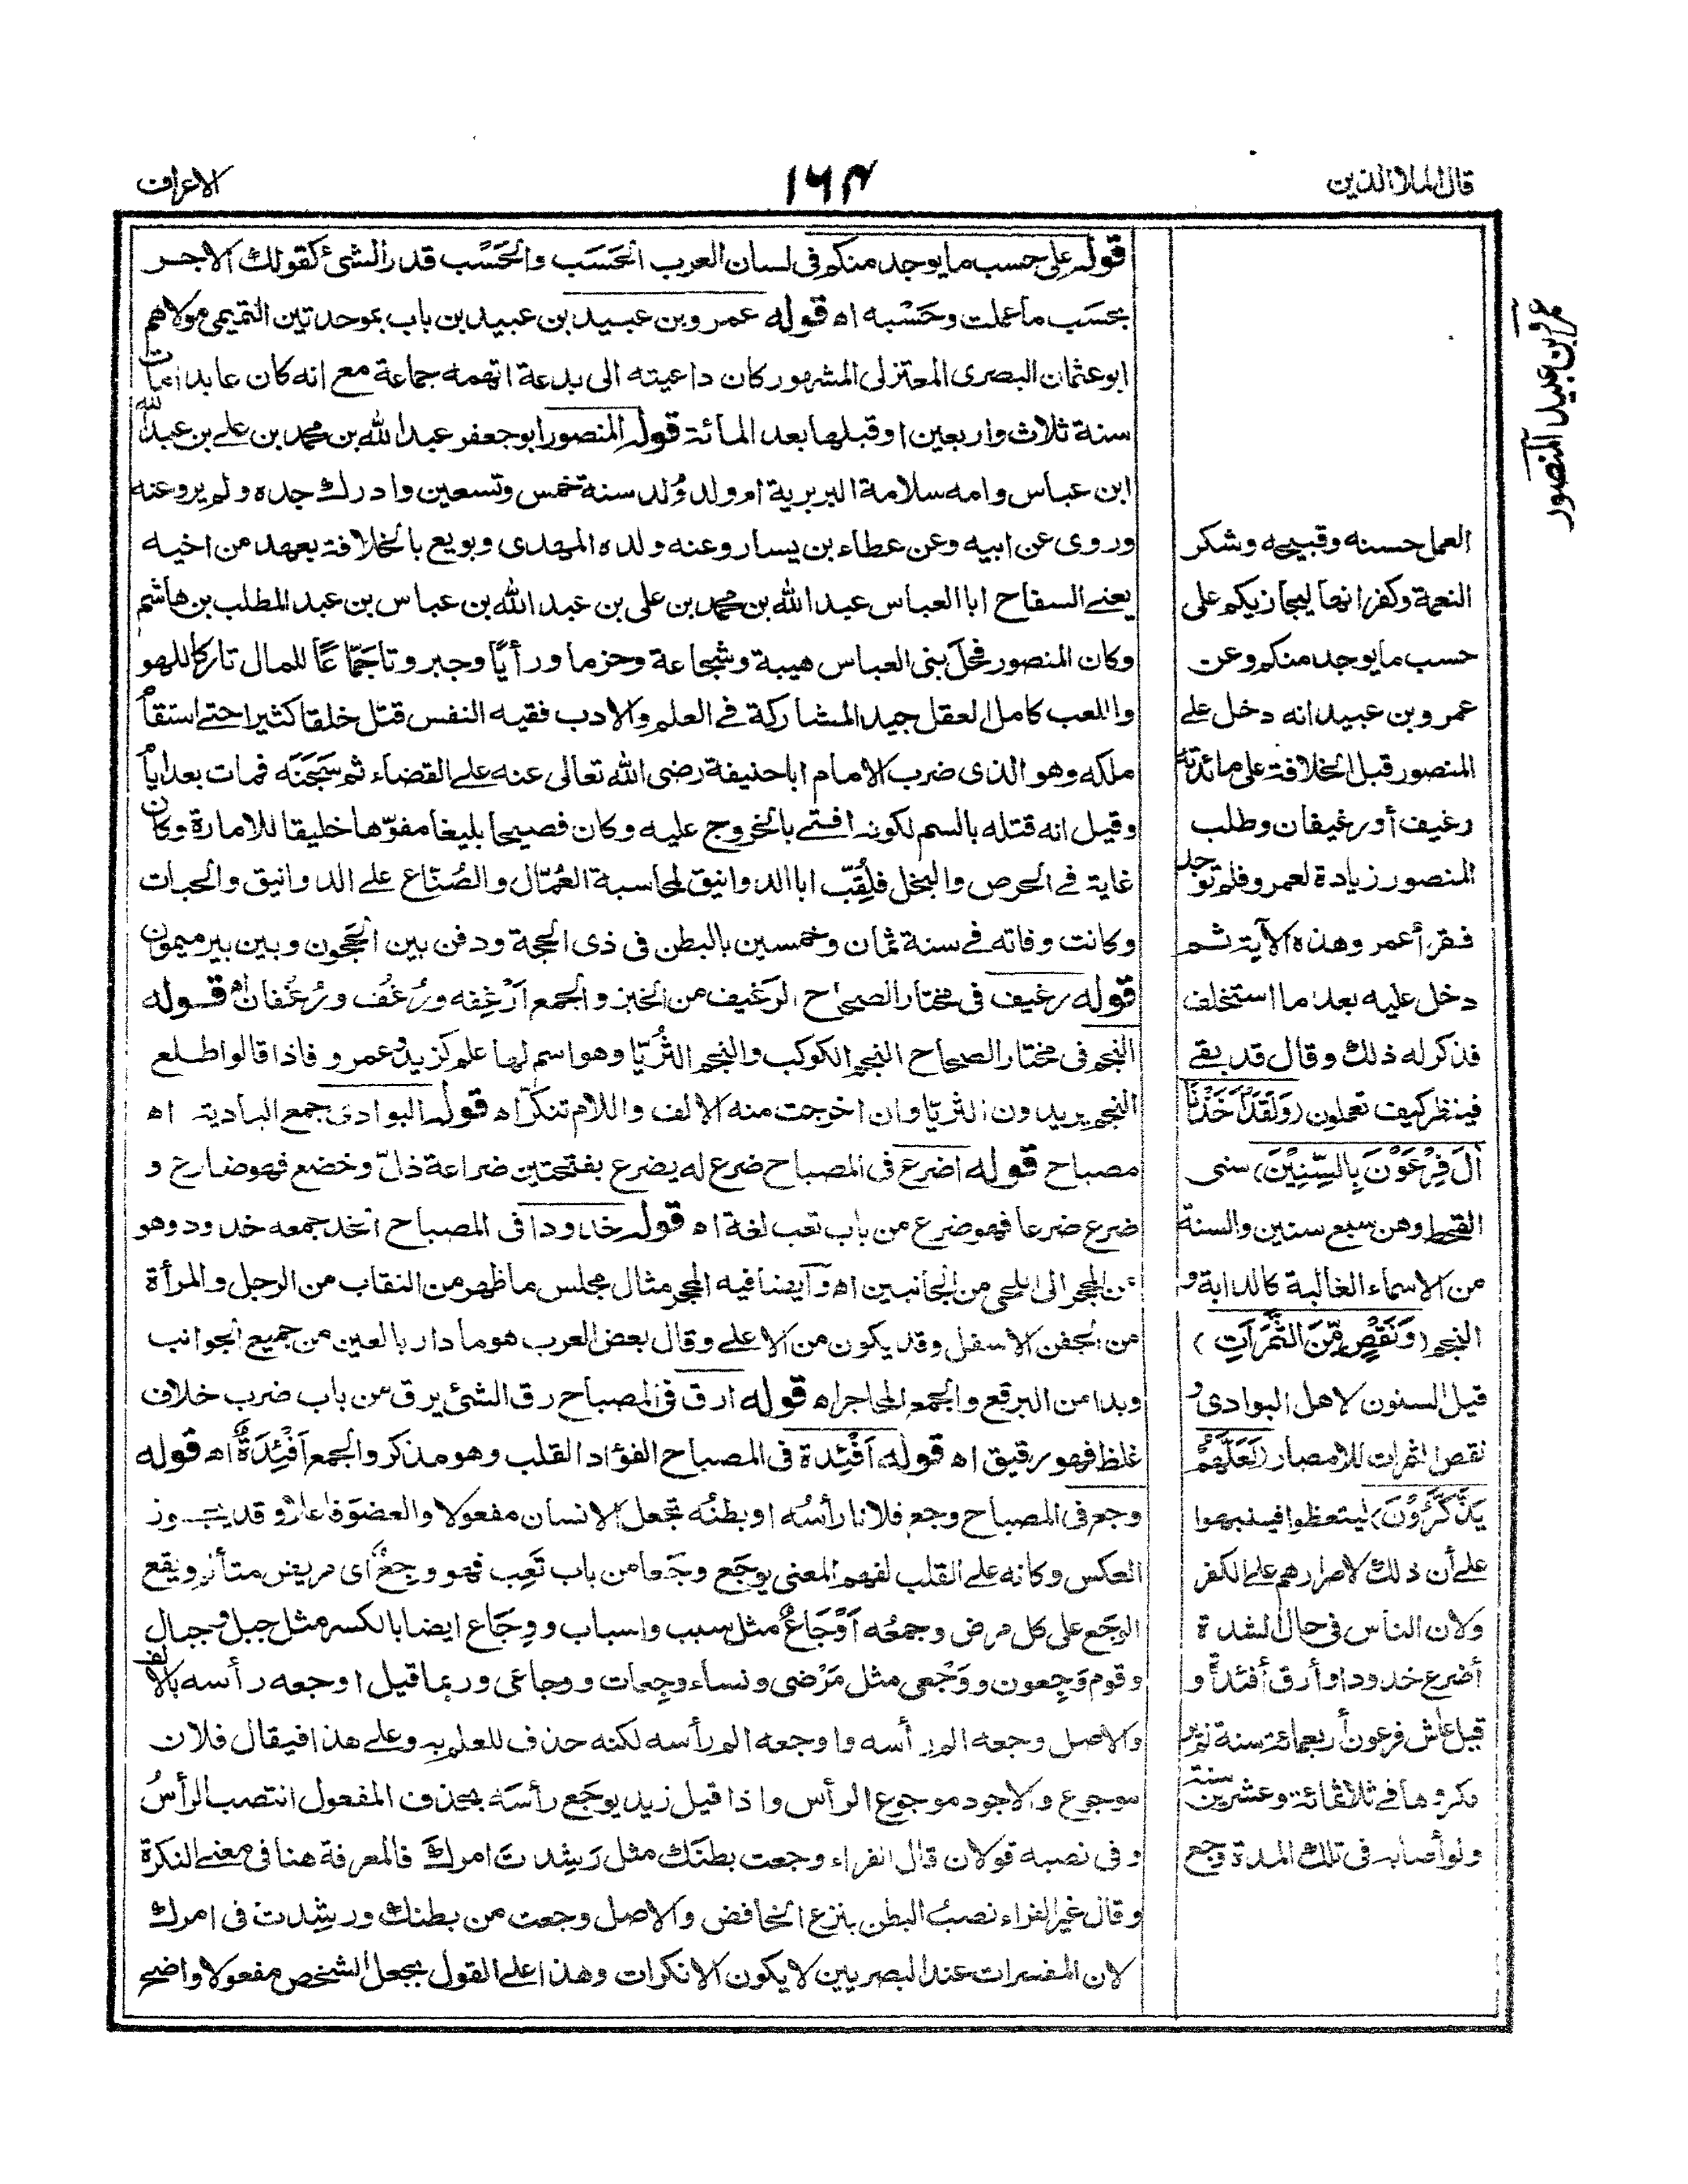 قال الملأ الذين
١٦٤
الاعراف
عمرو بن عبيد المنصور
العمل حسنه وقبيحه وشكر
النعمة وكفرانها ليجازيكم على
حسب ما يوجد منكم وعن
عمرو بن عبيد انه دخل على
المنصور قبل الخلافة على مائدته
رغيف أو رغيفان وطلب
المنصور زيادة لعمرو فلم توجد
فقرأ عمرو هذه الآية ثم
دخل عليه بعد ما استخلف
فذكر له ذلك وقال قد بقي
فينظر كيف تعملون (وَلَقَدْ أَخَذْنَا
آلَ فِرْعَوْنَ بِالسِّنِيْنَ) سنى
القحط وهن سبع سنين والسنة
من الاسماء الغالبة كالدابة و
النجم (وَنَقْصٍ مِّنَ الثَّمَرَاتِ)
قيل السنون لاهل البوادى و
نقص الثمرات للامصار (لَعَلَّهُمْ
يَذَّكَّرُوْنَ) ليتعظوا فينبهوا
على أن ذلك لاصرارهم على الكفر
ولان الناس فى حال الشدة
أضرع خدودا وأرق أفئدة و
قيل عاش فرعون أربعمائة سنة لم ير
مكروها فى ثلاثمائة وعشرين سنة
ولو أصابه فى تلك المدة وجع
قوله على حسب ما يوجد منكم فى لسان العرب الحَسَب والحَسْب قدر الشئ كقولك الاجر
بحسَب ما عملت وحَسْبه اه قوله عمرو بن عبيد بن عبيد بن باب بموحدتين التميمى مولاهم
ابو عثمان البصرى المعتزلى المشهور كان داعيته الى بدعة اتهمه جماعة مع انه كان عابدا مات
سنة ثلاث واربعين او قبلها بعد المائة قوله المنصور ابو جعفر عبد الله بن محمد بن على بن عبد الله
ابن عباس وامه سلامة البربرية ام ولد وُلد سنة خمس وتسعين وادرك جده ولم يرو عنه
وروى عن ابيه وعن عطاء بن يسار وعنه ولده المهدى وبويع بالخلافة بعهد من اخيه
يعنى السفاح ابا العباس عبد الله بن محمد بن على بن عبد الله بن عباس بن عبد المطلب بن هاشم
وكان المنصور فحل بنى العباس هيبة وشجاعة وحزما ورأيًا وجبروتا جَمّاعًا للمال تاركا للهو
واللعب كامل العقل جيد المشاركة فى العلم والادب فقيه النفس قتل خلقا كثيرا حتى استقام
ملكه وهو الذى ضرب الامام ابا حنيفة رضى الله تعالى عنه على القضاء ثم سَجَنَه فمات بعد ايام
وقيل انه قتله بالسم لكونه افتى بالخروج عليه وكان فصيحا بليغا مفوّها خليقا للامارة وكان
غاية فى الحرص والبخل فلُقِّب ابا الدوانيق لمحاسبة العُمّال والصُنّاع على الدوانيق والحبات
وكانت وفاته فى سنة ثمان وخمسين بالبطن فى ذى الحجة ودفن بين الحَجون وبين بير ميمون
قوله رغيف فى مختار الصحاح الرَغيف من الخبز والجمع اَرْغِفه ورُغُف ورُغْفان اه قوله
النجم فى مختار الصحاح النجم الكوكب والنجم الثُريّا وهو اسم لها علم كزيد وعمرو فاذا قالوا طلع
النجم يريدون الثريّا وان اخرجت منه الالف واللام تنكّر اه قوله البوادى جمع البادية اه
مصباح قوله اضرع فى المصباح ضرع له يضرع بفتحتين ضراعة ذلّ وخضع فهو ضارع و
ضرع ضرعا فهو ضرع من باب تعب لغة اه قوله خدودا فى المصباح الخد جمعه خدود وهو
من المحجر الى اللحى من الجانبين اه وايضا فيه المحجر مثال مجلس ما ظهر من النقاب من الرجل والمرأة
من الجفن الاسفل وقد يكون من الاعلى وقال بعض العرب هو ما دار بالعين من جميع الجوانب
وبدا من البرقع والجمع المحاجر اه قوله ارق فى المصباح رق الشئ يرق من باب ضرب خلاف
غلظ فهو رقيق اه قوله اَفْئِدة فى المصباح الفؤاد القلب وهو مذكر والجمع اَفْئِدَةٌ اه قوله
وجع فى المصباح وجع فلانا رأسُه او بطنُه تجعل الانسان مفعولا والعضوَ فاعلا وقد يجوز
العكس وكانه على القلب لفهم المعنى يوجَع وجَعا من باب تَعِب فهو وجِعٌ اى مريض متألم ويقع
الوَجَع على كل مرض وجمعُه اَوْجَاعٌ مثل سبب واسباب ووِجَاع ايضا بالكسر مثل جبل وجبال
وقوم وَجِعون ووَجْعى مثل مَرْضى ونساء وجِعات ووجاعى وربما قيل اوجعه رأسه بالالف
والاصل وجعه الم رأسه واوجعه الم رأسه لكنه حذف للعلم به وعلى هذا فيقال فلان
موجوع والاجود موجوع الرأس واذا قيل زيد يوجَع رأسَه بحذف المفعول انتصب الرأسُ
وفى نصبه قولان قال الفراء وجعت بطنَك مثل رَشِدتَ امرك فالمعرفة هنا فى معنى النكرة
وقال غير الفراء نصبُ البطن بنزع الخافض والاصل وجعت من بطنك ورشِدت فى امرك
لان المفسرات عند البصريين لا يكون الا نكرات وهذا على القول بجعل الشخص مفعولا واضح